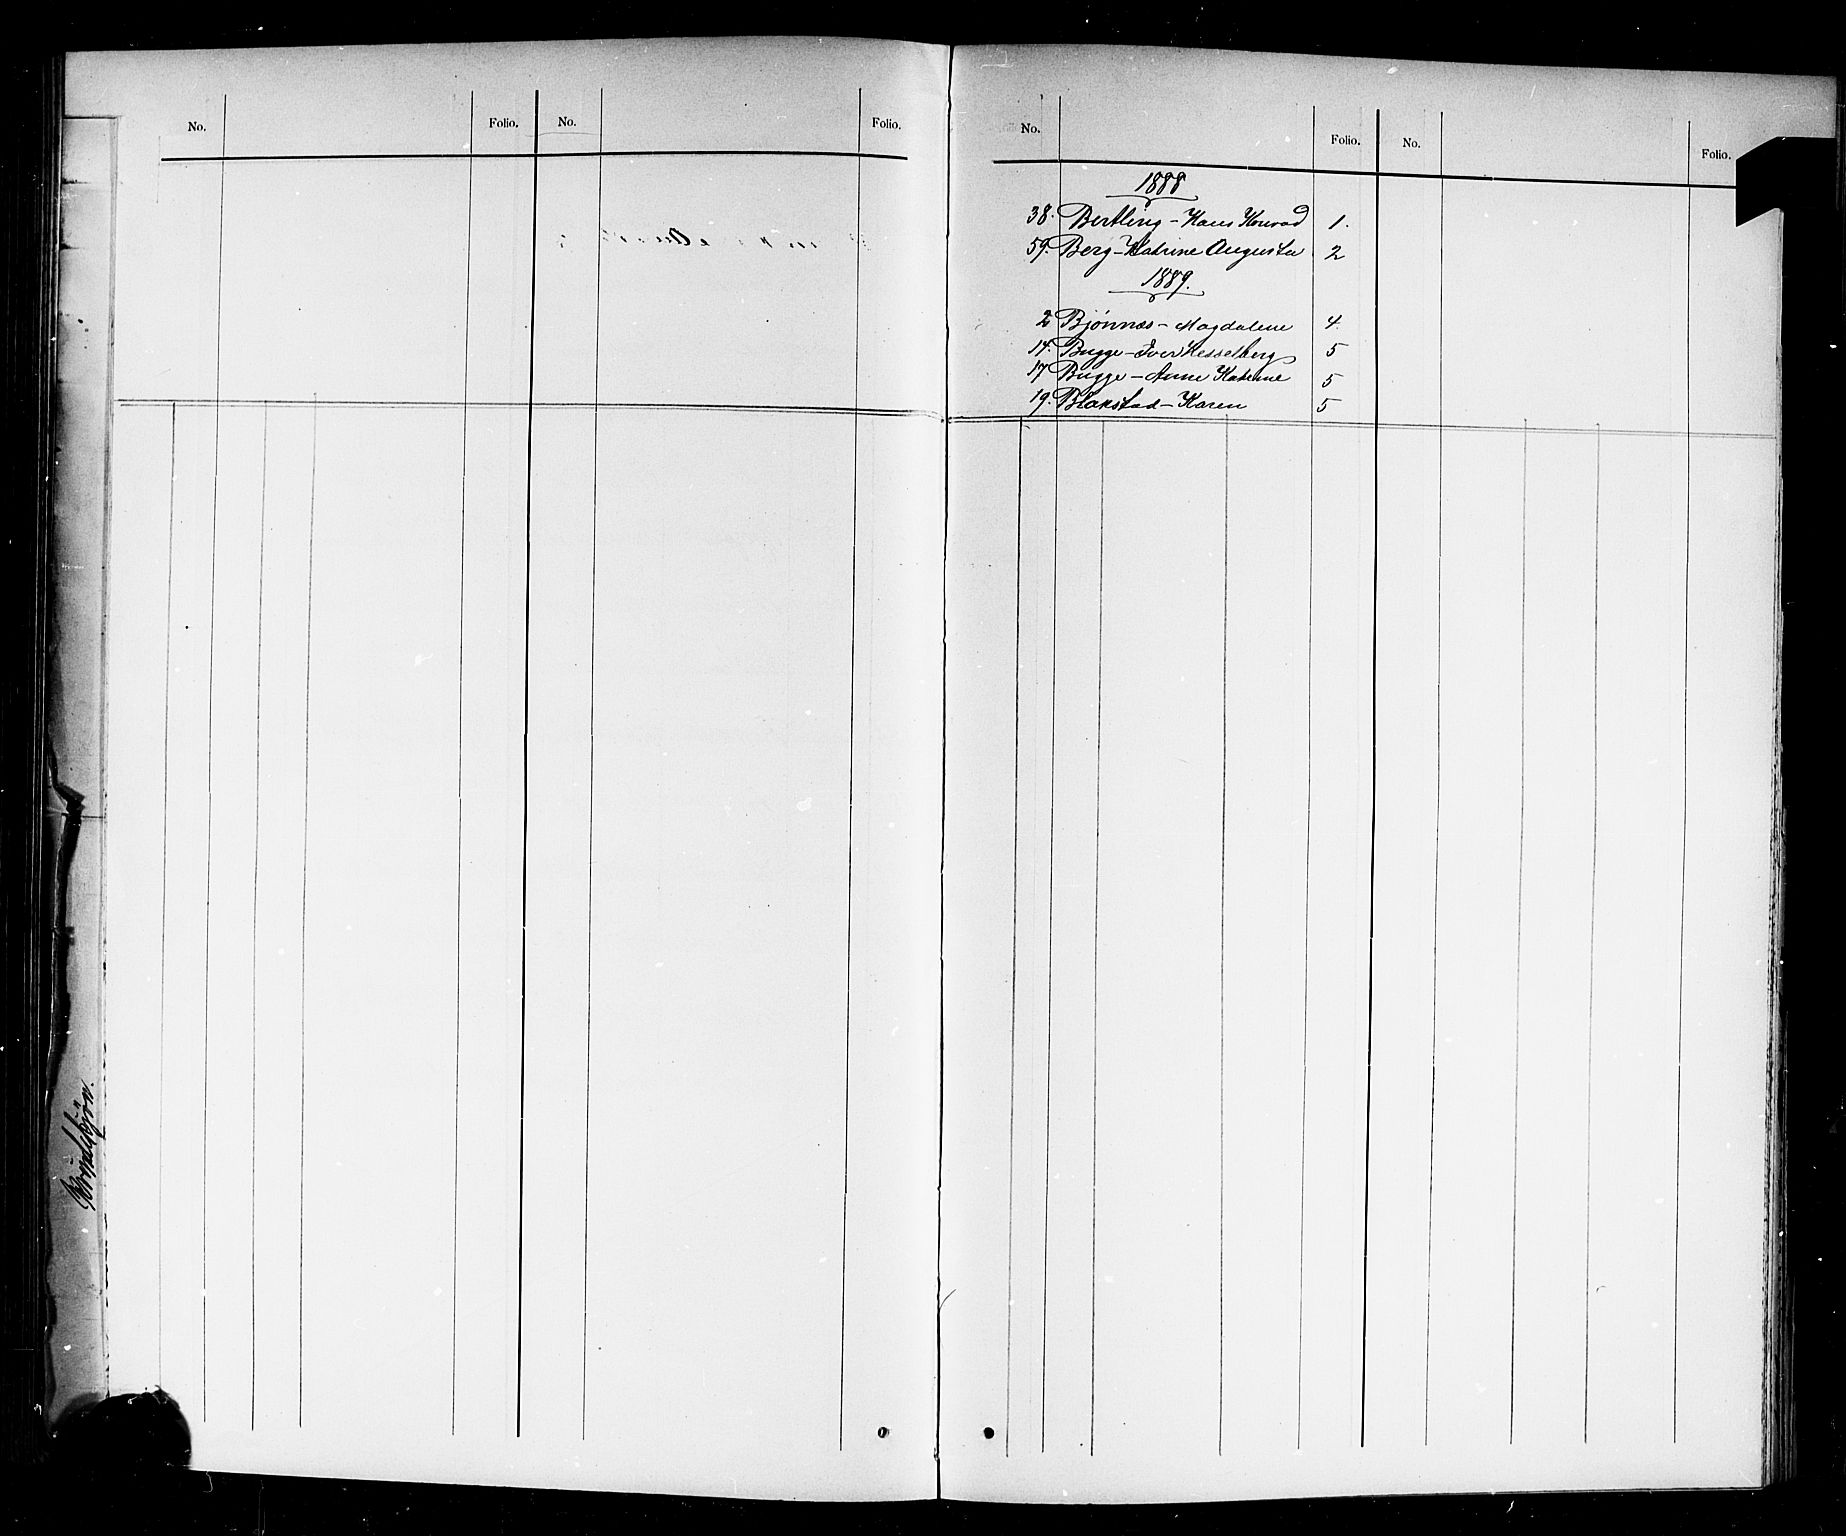 No. Folio. No. Folio.
No. Folio. No. Folio.
1888
38. Bertling - Hans Konrad 1.
59. Berg - Katrine Augusta 2
1889.
2 Bjönnæs - Magdalene 4.
14. Bugge - Iver Hesselberg 5
17 Bugge - Anne Katrine 5
19. Blakstad - Karen 5